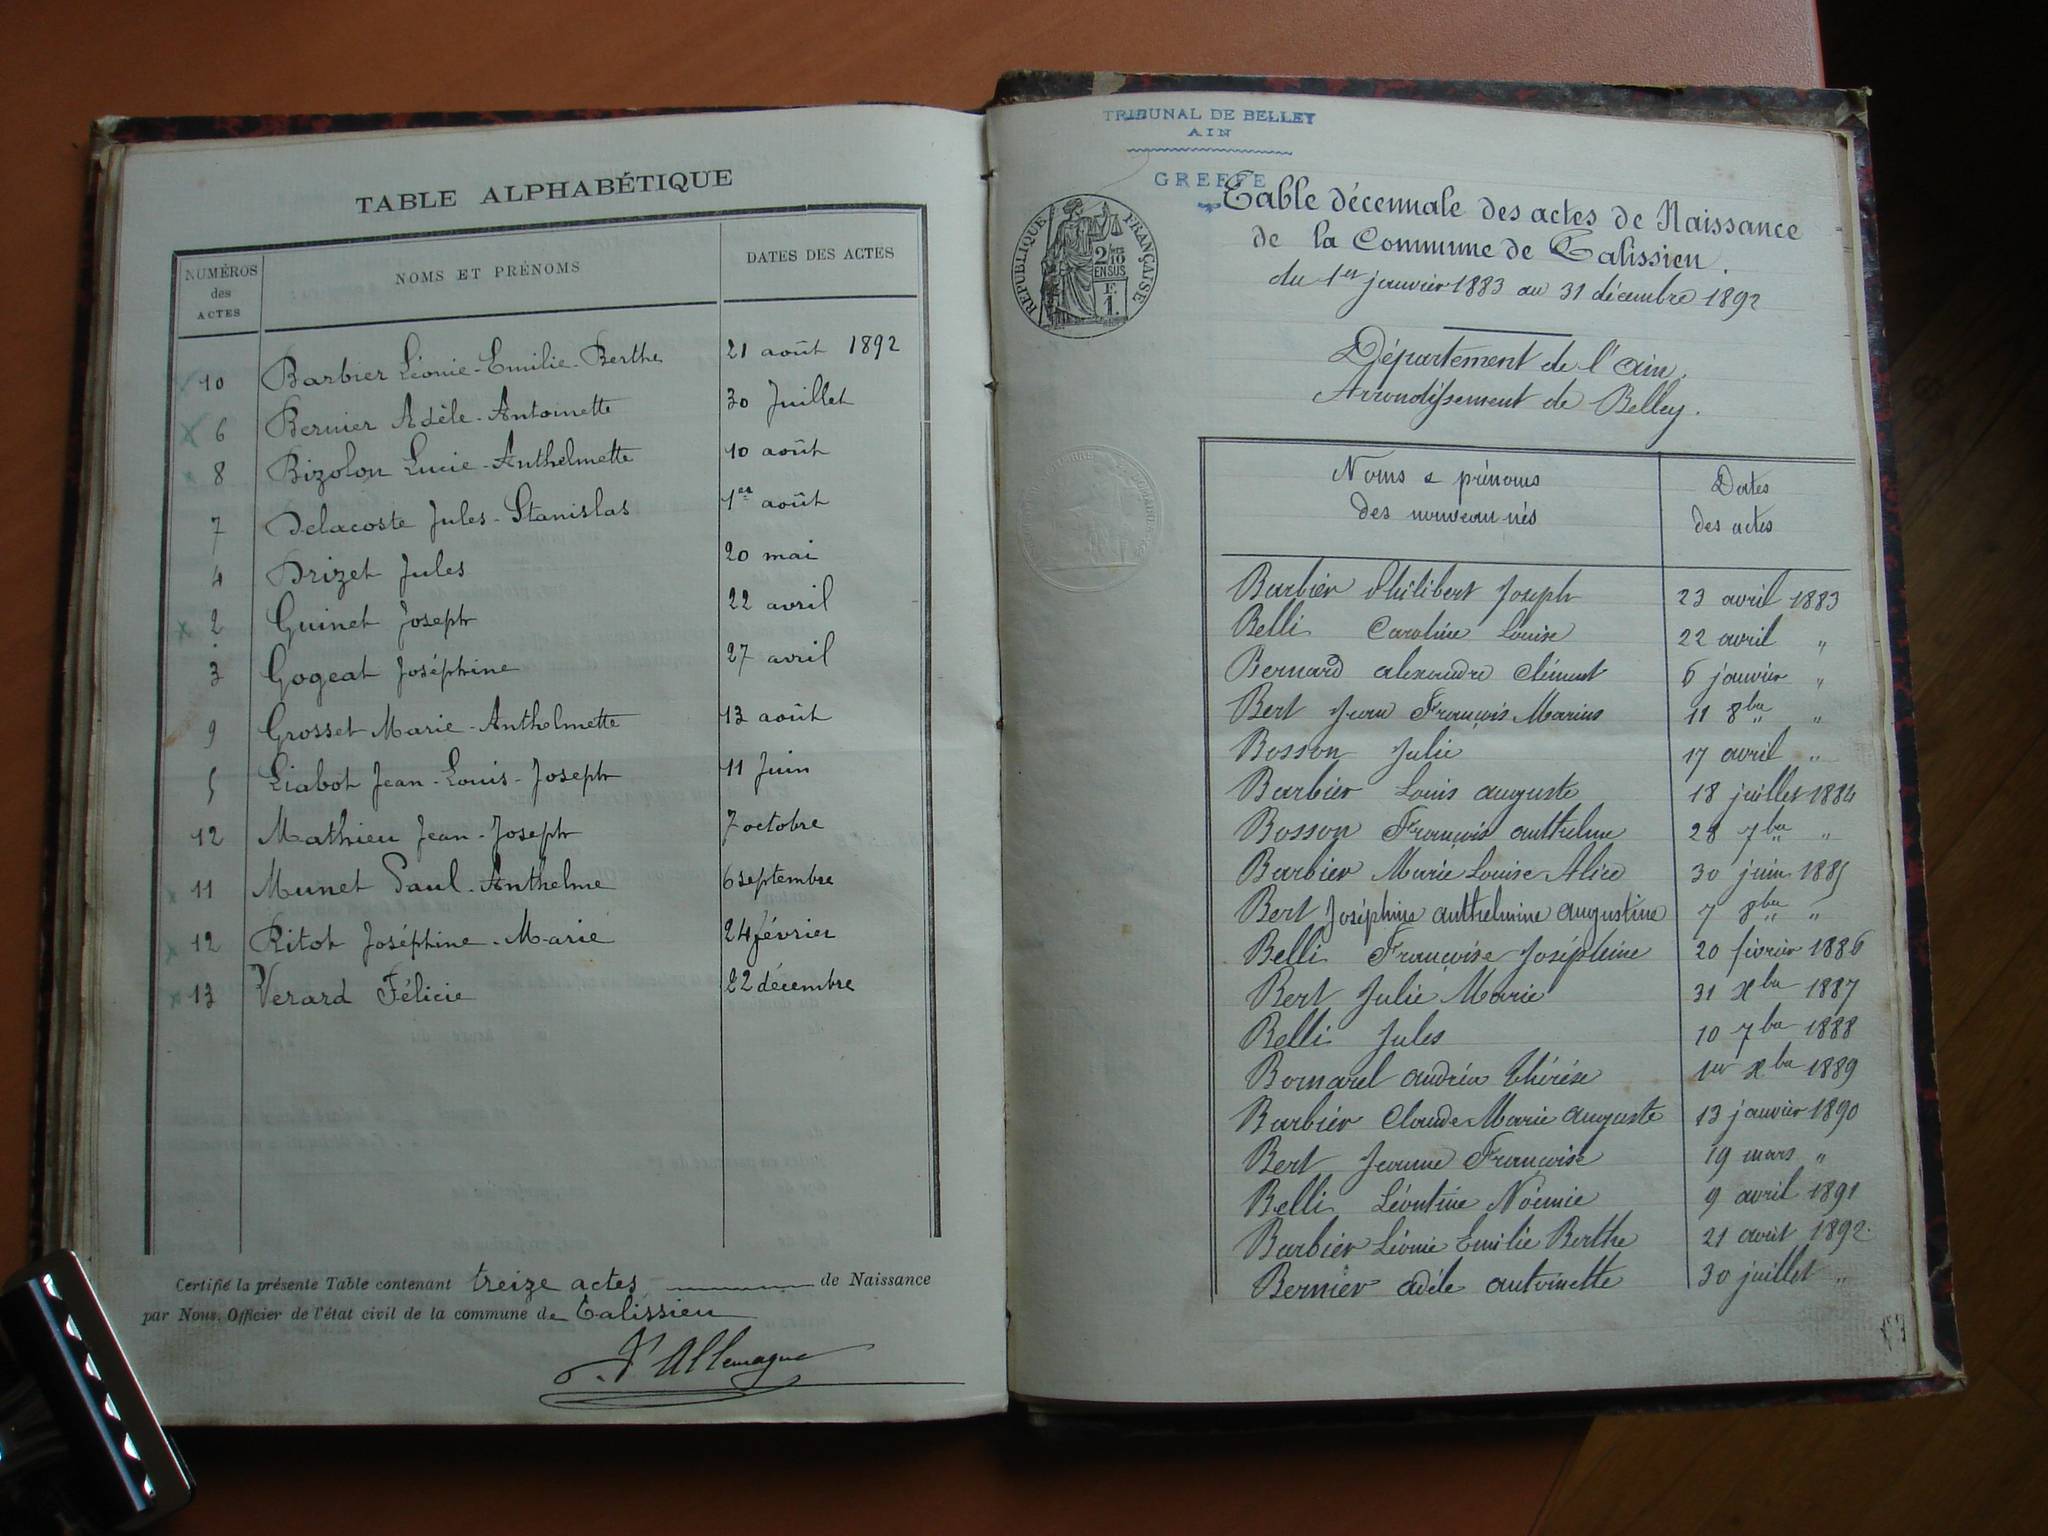 TABLE ALPHABÉTIQUE
NUMÉROS des ACTES NOMS ET PRÉNOMS DATES DES ACTES
10 Barbier Léonie-Emilie-Berthe 21 août 1892
6 Bernier Adèle-Antoinette 30 Juillet
8 Bizolon Lucie-Anthelmette 10 août
7 Delacoste Jules-Stanislas 1er août
4 Drizet Jules 20 mai
2 Guinet Joseph 22 avril
3 Gogeat Joséphine 27 avril
9 Grosset Marie-Anthelmette 13 août
5 Liabot Jean-Louis-Joseph 11 Juin
12 Mathieu Jean-Joseph 7 octobre
11 Munet Paul-Anthelme 6 septembre
12 Ritot Joséphine-Marie 24 février
13 Verard Félicie 22 décembre
Certifié la présente Table contenant treize actes de Naissance
par Nous, Officier de l'état civil de la commune de Talissieu
D'Allemagne
TRIBUNAL DE BELLEY
AIN
GREFFE
RÉPUBLIQUE FRANÇAISE
2/10 EN SUS
F.
1.
Table décennale des actes de Naissance
de la Commune de Talissieu.
du 1er janvier 1883 au 31 décembre 1892
Département de l'Ain.
Arrondissement de Belley.
Noms & prénoms Dates
des nouveau nés des actes
Barbier Philibert Joseph 23 avril 1883
Belli Caroline Louise 22 avril "
Bernard alexandre Clément 6 janvier "
Bert Jean François Marius 11 8bre "
Bosson Julie 17 avril "
Barbier Louis auguste 18 juillet 1884
Bosson François anthelme 28 7bre "
Barbier Marie Louise Alice 30 juin 1885
Bert Joséphine anthelmine augustine 7 8bre "
Belli Françoise Joséphine 20 février 1886
Bert Julie Marie 31 Xbre 1887
Belli Jules 10 7bre 1888
Bornarel andréa thérèse 1er Xbre 1889
Barbier Claude Marie auguste 13 janvier 1890
Bert Jeanne Françoise 19 mars "
Belli Léontine Noémie 9 avril 1891
Barbier Léonie Emilie Berthe 21 août 1892
Bernier adèle antoinette 30 juillet "